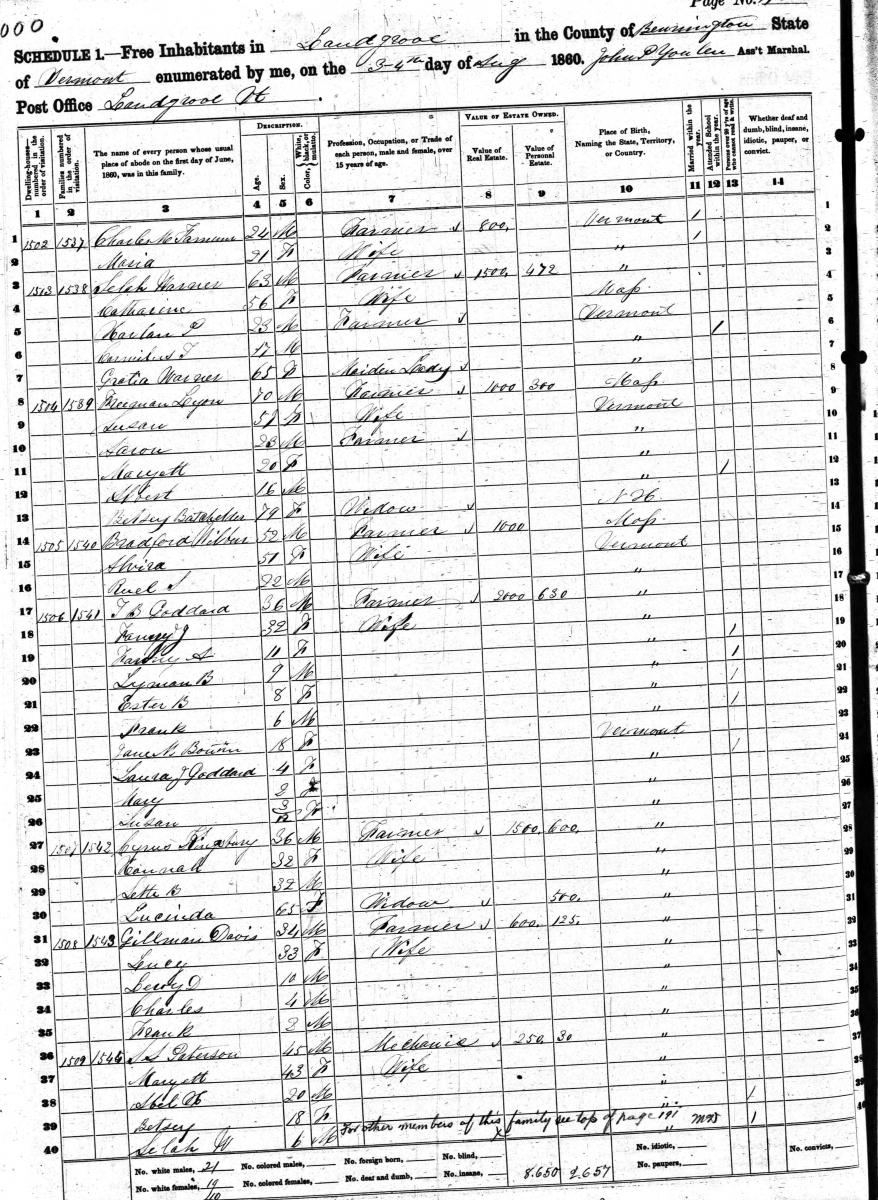 000
Page No.
SCHEDULE 1.—Free Inhabitants in Landgrove in the County of Bennington State
of Vermont enumerated by me, on the 3-4th day of Aug 1860. John P Youlen Ass't Marshal.
Post Office Landgrove Vt
Dwelling-houses—numbered in the order of visitation.
Families numbered in the order of visitation.
The name of every person whose usual place of abode on the first day of June, 1860, was in this family.
DESCRIPTION.
Age.
Sex.
Color, White, black, or mulatto.
Profession, Occupation, or Trade of each person, male and female, over 15 years of age.
VALUE OF ESTATE OWNED.
Value of Real Estate.
Value of Personal Estate.
Place of Birth, Naming the State, Territory, or Country.
Married within the year.
Attended School within the year.
Persons over 20 y'rs of age who cannot read & write.
Whether deaf and dumb, blind, insane, idiotic, pauper, or convict.
1 2 3 4 5 6 7 8 9 10 11 12 13 14
1 1502 1537 Charles M 24 M Farmer 800. Vermont 1
2 Maria 21 F Wife " 1
3 1513 1538 Selah Warner 63 M Farmer 1500. 472 "
4 Catharine 56 F Wife Mass
5 Harlan P 23 M Farmer Vermont
6 17 M " 1
7 Gratia Warner 65 F Maiden Lady "
8 1504 1539 Freeman Lyon 70 M Farmer 1000 300 Mass
9 Susan 51 F Wife Vermont
10 Aaron 23 M Farmer "
11 Maryett 20 F "
12 Albert 16 M " 1
13 Betsey Batchelder 79 F Widow N H
14 1505 1540 Bradford Wilbur 52 M Farmer 1000 Mass
15 Alvira 51 F Wife Vermont
16 Ruel S 22 M "
17 1506 1541 T B Goddard 36 M Farmer 2000 630 "
18 Fanny J 32 F Wife "
19 Fanny A 10 F " 1
20 Lyman B 9 M " 1
21 Ester B 8 F " 1
22 Frank 6 M " 1
23 Jane M 18 F Vermont
24 Laura J Goddard 4 F " 1
25 Mary 2 F "
26 Susan 3/12 F "
27 1507 1542 Cyrus Kingsbury 36 M Farmer 1500. 600. "
28 Hannah 32 F Wife "
29 Lette B 32 M "
30 Lucinda 65 F Widow 500. "
31 1508 1543 Gillman Davis 34 M Farmer 600. 125. "
32 Lucy 33 F Wife "
33 Leroy D 10 M "
34 Charles 4 M "
35 Frank 2 M "
36 1509 1544 S S Peterson 45 M Mechanic 250. 30 "
37 Maryett 43 F Wife "
38 Abel 20 M "
39 Betsey 18 F " 1
40 Selah W 6 M For other members of this family see top of page 191 " 1
No. white males, 21 No. colored males, No. foreign born, No. blind, No. idiotic, No. convicts,
No. white females, 19 No. colored females, No. deaf and dumb, No. insane, 8.650 2.657 No. paupers,